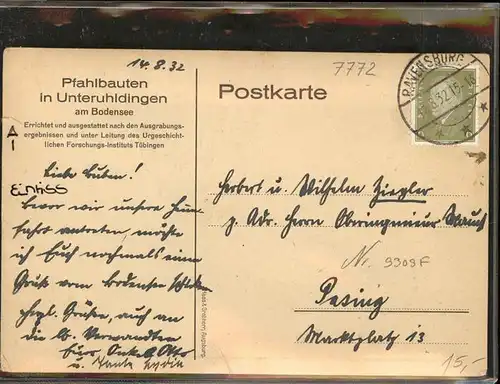 14.8.32
7772
Pfahlbauten
in Unteruhldingen
am Bodensee
Errichtet und ausgestattet nach den Ausgrabungs-
ergebnissen und unter Leitung des Urgeschicht-
lichen Forschungs-Instituts Tübingen
Postkarte
RAVENSBURG
Liebe Buben!
Bevor wir unsere Heim-
fahrt antreten, möchte
ich Euch nochmals einen
Gruß vom Bodensee schicken
Herzl. Grüße, auch an
die lb. Verwandten
Euer Onkel Otto
u. Tante
Herbert u. Wilhelm Ziegler
z. Adr. Herrn Oberingenieur Mauch
Nr. 9309F
Pasing
Marktplatz 13
15,-